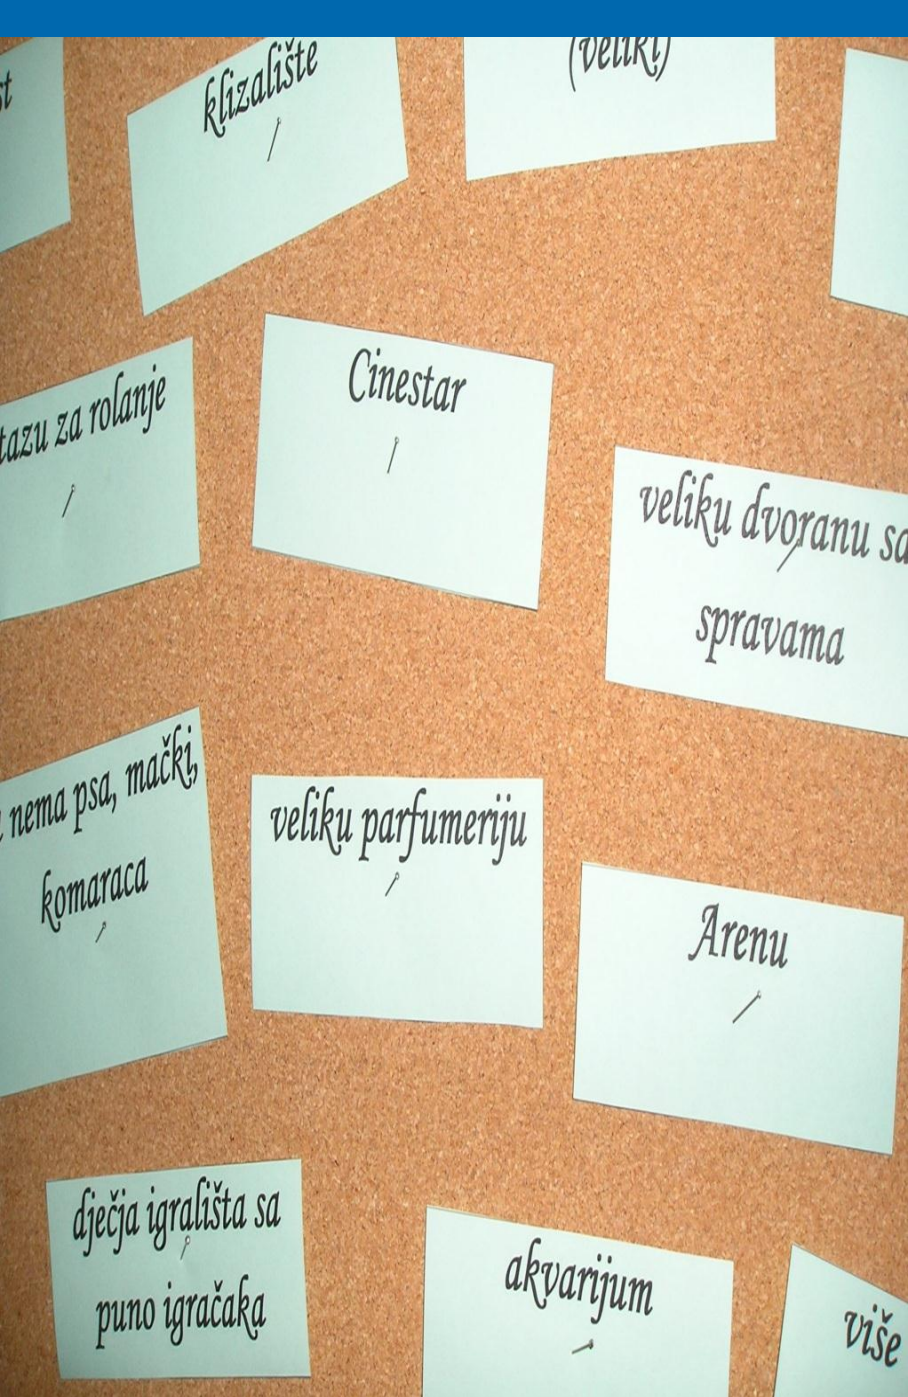 klizalište
(veliki)
za rolanje
Cinestar
veliku dvoranu sa
spravama
nema psa, mački,
komaraca
veliku parfumeriju
Arenu
dječja igrališta sa
puno igračaka
akvarijum
više